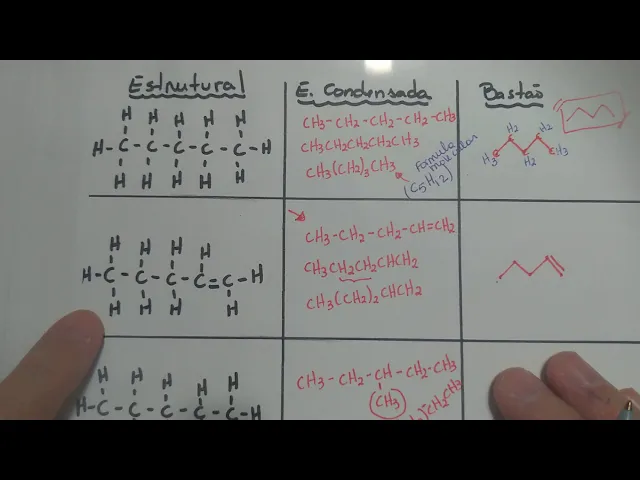 Estrutural
E. Condensada
Bastão
H H H H H
H-C-C-C-C-C-H
H H H H H
CH3-CH2-CH2-CH2-CH3
CH3CH2CH2CH2CH3
CH3(CH2)3CH3
Fórmula
molecular
(C5H12)
H2 H2
H3 H2 H3
H H H H
H-C-C-C-C=C-H
H H H H
CH3-CH2-CH2-CH=CH2
CH3CH2CH2CHCH2
CH3(CH2)2CHCH2
H H H H H
H-C-C-C-C-C-H
CH3-CH2-CH-CH2-CH3
CH3
CH2CH3